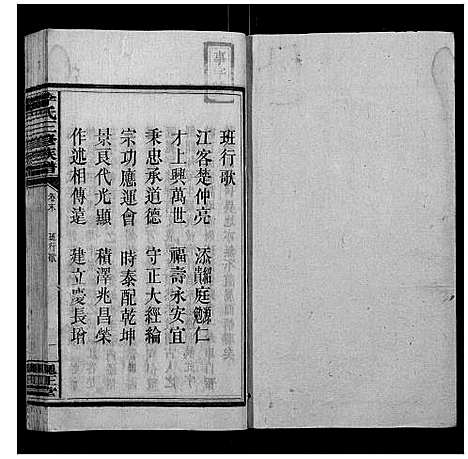 班行歌
江客楚仲亮 添庭仁
才上興萬世 福壽永安宜
秉忠承道德 守正大經綸
宗功應運會 時泰配乾坤
景良代光顯 積澤兆昌榮
作述相傳遠 建立慶長增
氏三修族譜
卷末
班行歌
一